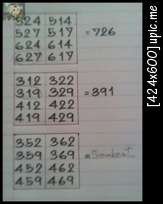 324 514
527 517 = 726
624 614
627 617
312 322
319 329 = 391
412 422
419 429
352 362
359 369
452 462
459 469
[424x600]uplic.me